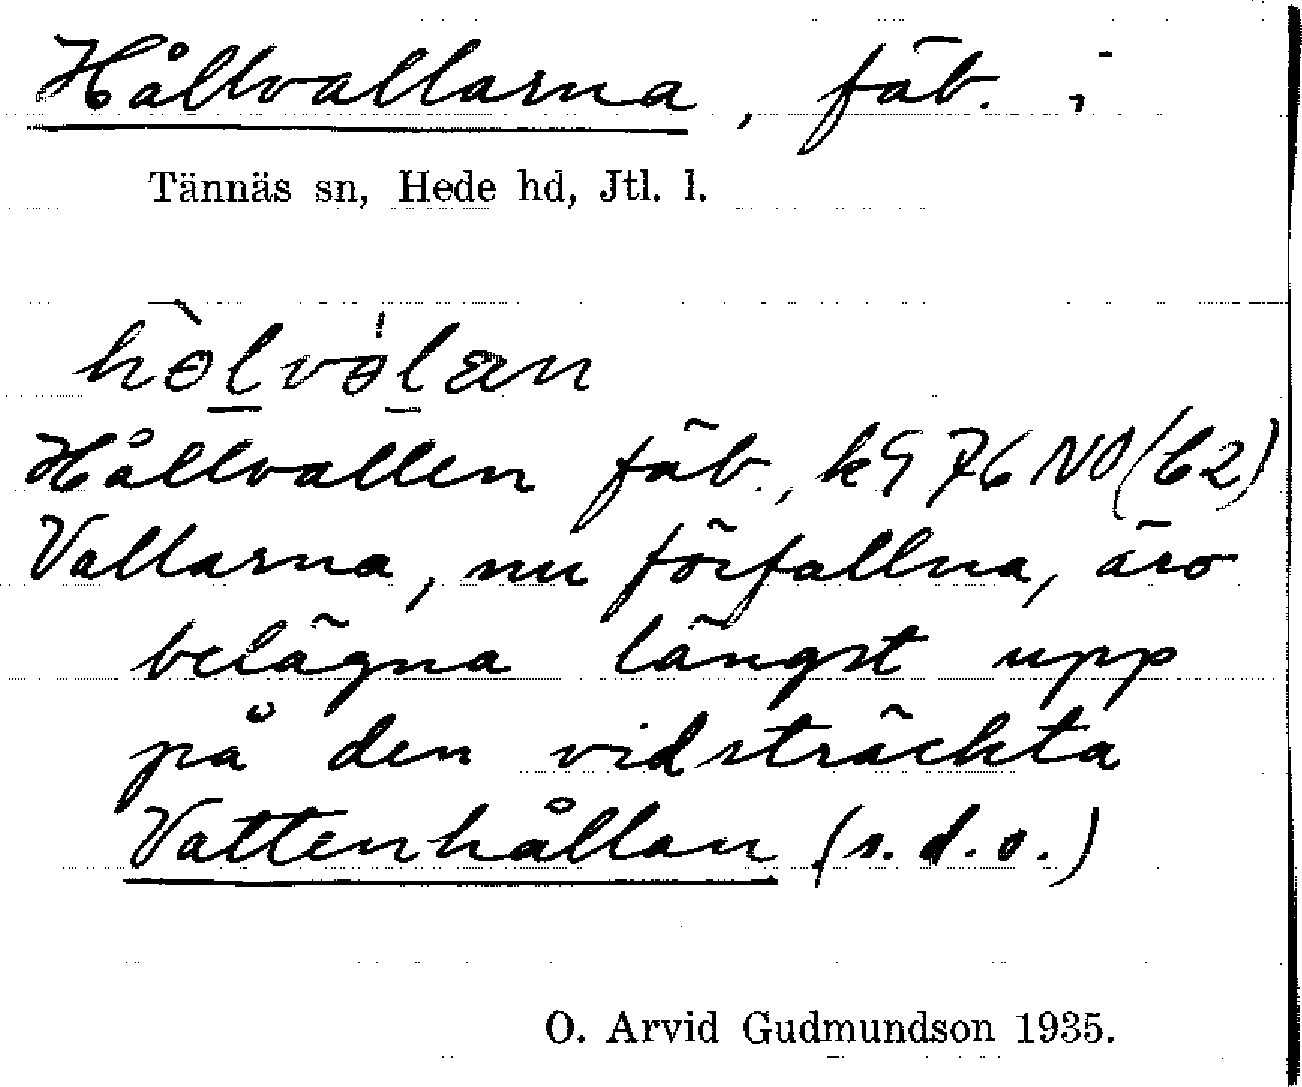 Hållvallarna, fäb. i
Tännäs sn, Hede hd, Jtl. l.
hòlvólan
Hållvallen fäb., kg 76 NO (b2)
Vallarna, nu förfallna, äro
belägna längst upp
på den vidsträckta
Vattenhållan (s.d.o.)
O. Arvid Gudmundson 1935.